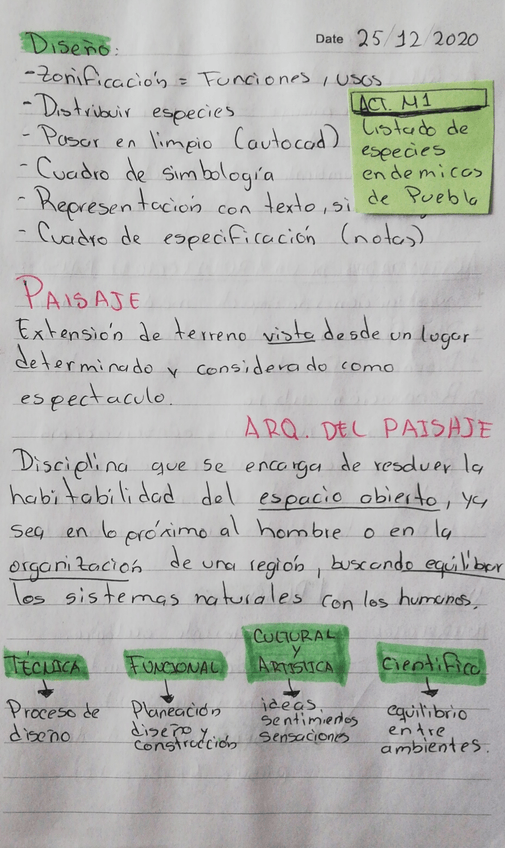 Diseño:
Date 25/12/2020
-Zonificación = Funciones, usos
- Distribuir especies
- Pasar en limpio (autocad)
- Cuadro de simbología
- Representación con texto, si
- Cuadro de especificación (notas)
ACT. M1
Listado de
especies
endemicas
de Puebla
PAISAJE
Extensión de terreno vista desde un lugar
determinado y considerado como
espectaculo.
ARQ. DEL PAISAJE
Disciplina que se encarga de resolver la
habitabilidad del espacio abierto, ya
sea en lo próximo al hombre o en la
organización de una región, buscando equilibrar
los sistemas naturales con los humanos.
TÉCNICA
Proceso de
diseño
FUNCIONAL
Planeación
diseño y
construcción
CULTURAL
Y
ARTISTICA
ideas,
sentimientos
sensaciones
Cientifico
equilibrio
entre
ambientes.